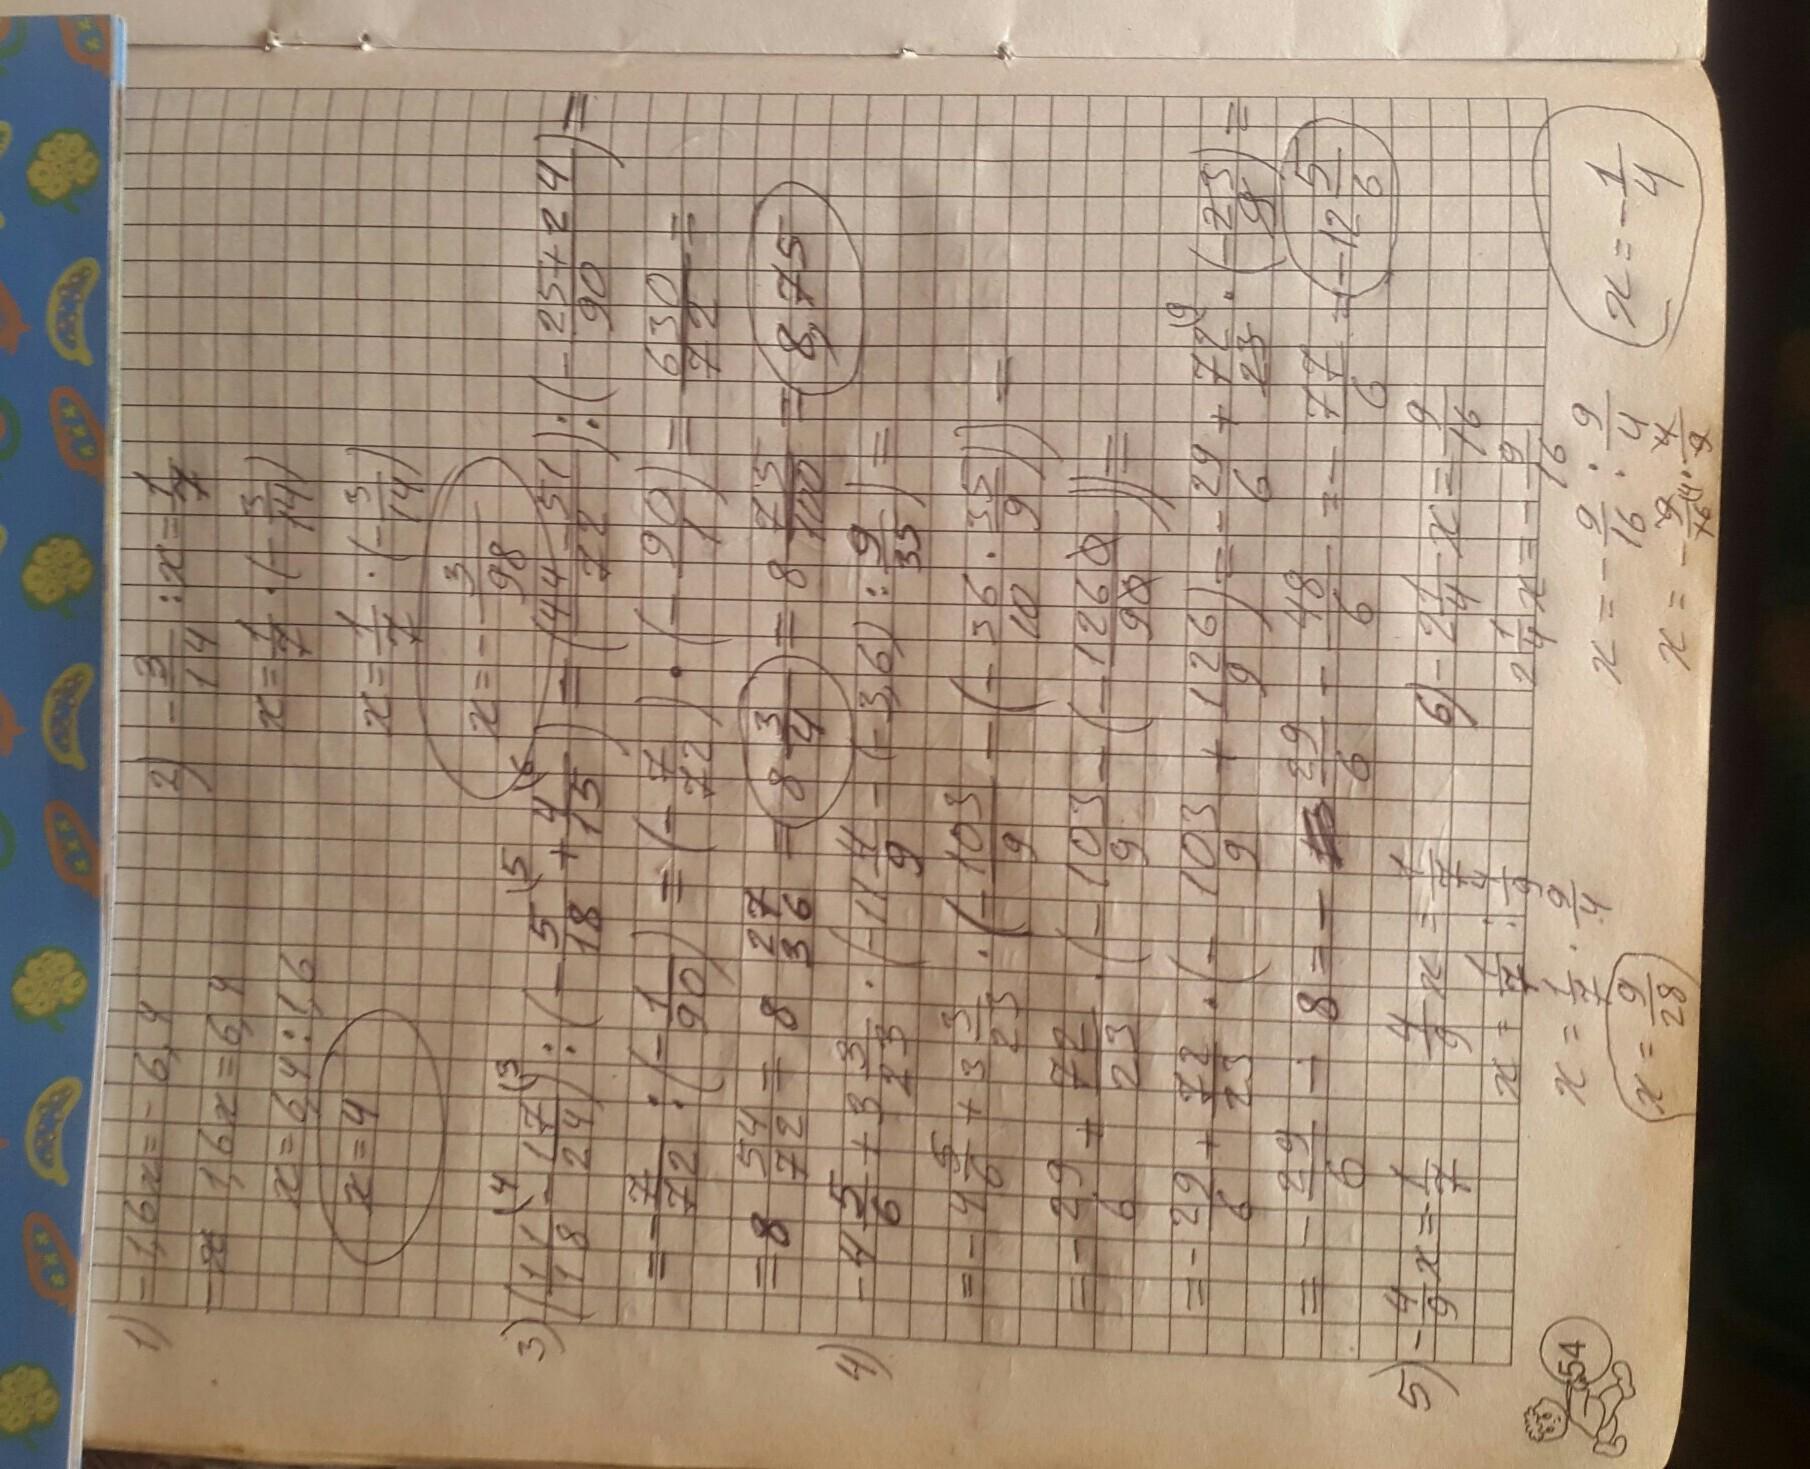 1) -1,6x=-6,4
1,6x=6,4
x=6,4:1,6
x=4
2) -3/14 :x=1/7
x=1/7·(-3/14)
x=1/7·(-3/14)
x=-3/98
3) (11/18(4 - 17/24(3) : (-5/18(5 + 4/15(6) = (44-51/72) : (-25+24/90) =
=-7/72 : (-1/90) = (-7/72)·(-90/1) = 630/72 =
=8 54/72 = 8 27/36 = 8 3/4 = 8 75/100 = 8,75
4) -4 5/6 + 3 3/23 · (-11 4/9 - (-3,6) : 9/35) =
=-4 5/6 + 3 3/23 · (-103/9 - (-36/10 · 35/9)) =
=-29/6 + 72/23 · (-103/9 - (-1260/90)) =
=-29/6 + 72/23 · (-103/9 + 126/9) = -29/6 + 72(9/23 · (-23/9) =
=-29/6 - 8 = - 29/6 - 48/6 = -77/6 = -12 5/6
5) -4/9 x=-1/7
4/9 x=1/7
x=1/7 : 4/9
x=1/7 · 9/4
x=9/28
6) -2 1/4 x=9/16
2 1/4 x=-9/16
x=-9/16 : 9/4
x=-9/16(4 · 4/9
x=-1/4
54